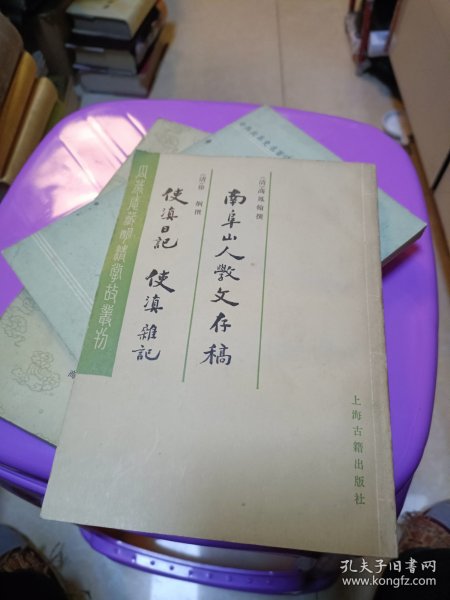 (清)高鳳翰撰
南阜山人斆文存稿
(清)徐炯撰
使滇日記 使滇雜記
瓜蒂庵藏明清掌故叢刊
上海古籍出版社
孔夫子旧书网
www.kongfz.com